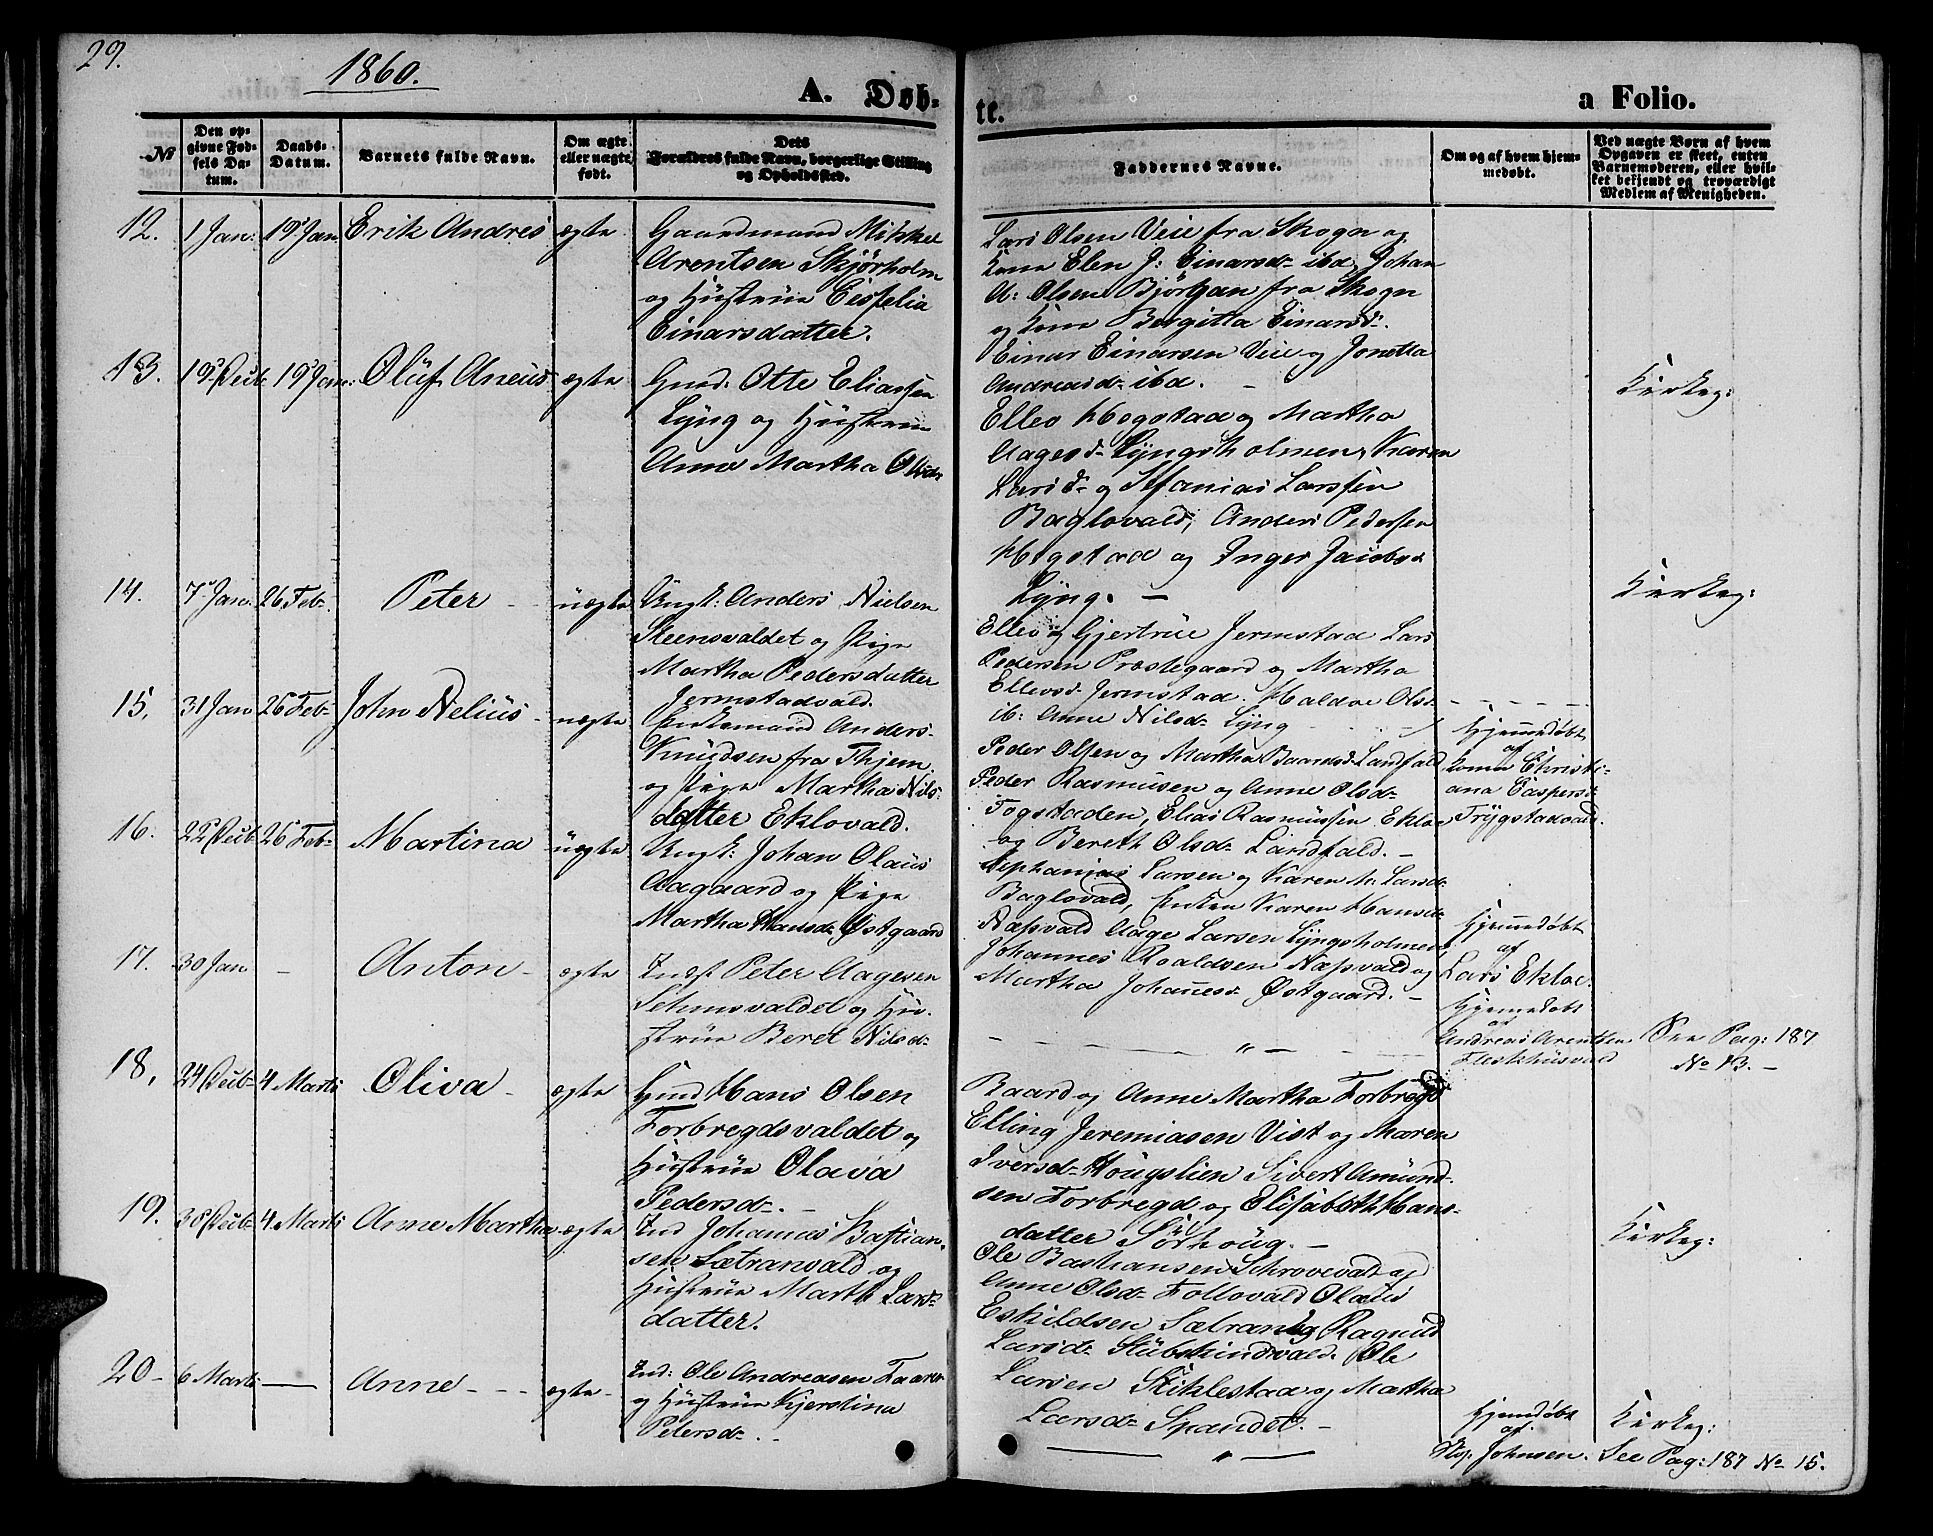 29.
1860.
A. Døb-
te.
a Folio.
№
Den op-
givne Fød-
sels Da-
tum.
Daabs-
Datum.
Barnets fulde Navn.
Om ægte
eller uægte
født.
Dets
Forældres fulde Navn, borgerlige Stilling
og Opholdssted.
Faddernes Navne.
Om og af hvem hjem-
medøbt.
Ved uægte Børn af hvem
Opgaven er skeet, enten
Barnemoderen, eller hvil-
ket bekjendt og troværdigt
Medlem af Menigheden.
12. 1 Jan: 19 Jan Erik Andres ægte
Gaardmand Mikkel
Arentsen Skjørholm
og Hustrue Cesselia
Einarsdatter.
Lars Olsen Veie fra Skogn og
Kone Elen J: Einarsd- ibd, Johan
A: Olsen Bjørgan fra Skogn
og Kone Bergitta Einarsd-.
Einar Einarsen Veie og Jonetta
Andreasd- ibd. -
13. 19 Jan: Oluf Aneus ægte
Gmd: Otte Eliassen
Lyng og Hustrue
Anne Martha Olsd-
Ellev Hegstad og Martha
Aagesd- Lyngsholmen, Karen
Larsd- og Stefanias Larssen
Baglovald, Anders Pedersen
Hegstad og Inger Jacobsd-
Lyng. -
Kirkeg:
14. 7 Jan. 26 Feb. Peter - uægte
Ungk: Anders Nielsen
Steensvaldet og Pige
Martha Pedersdatter
Jermstadvald.
Ellev og Gjertrue Jermstad Lars
Pedersen Præstegaard og Martha
Ellevsd- Jermstad. Haldoe Olsd-
ib: Anne Nilsd- Lyng
Kirkeg:
15, 31 Jan 26 Feb- John Nelius - uægte
Enkemand Anders
Knudsen fra
og Pige Martha Nils-
datter Eklovald.
Peder Olsen og Martha Baardsd- Landfald
Peder Rasmusen og Anne Olsd-
Fogstaden, Elias Rasmussen Ekloe,
og Bereth Olsd- Landfald. -
Hjemmedøbt
af
Kone Christi-
ana Caspersd-
Trygstadvald.
16. 26 Feb- Martina - uægte
Ungk: Johan Olaus
Aagaard og Pige
Martha Hansd- Østgaard
Stephanias Larsen og Karen M: Larsd-
Baglovald, Enken Karen Hansd-
Næsvald Aage Larsen Lyngsholmen,
Johannes Roaldsen Næsvald og
Martha Johanesd- Østgaard. -
Hjemmedøbt
af
Lars Ekloe.
17. 30 Jan - Anton - ægte
Indst Peter Aagesen
og Hu-
strue Beret Nilsd-
- - - " - - -
Hjemmedøbt
af
Andreas Arentsen
Fleskhusvald
See Pag: 187
No 13. -
18, 4 Marts Oliva - ægte
Hmd Hans Olsen
Forbregdsvaldet og
Hustrue Olava
Pedersd-. -
Baard og Anne Martha Forbregd
Elling Jeremiasen Vist og Maren
Iversd- Hougslien Sivert Amund-
sen Forbregd og Elisabeth Hans-
datter Sørhoug. -
19. 4 Marts Anne Martha ægte
Ind Johannes Bastian-
sen Sætranvald og
Hustrue Marth Lars-
datter.
Ole Bastiansen Skrovevald og
Anne Olsd- Follovald Olaus
Eskildsen Sætran og Ragnild
Larsd- Stubskindvald. Ole
Larsen Stiklestad og Martha
Larsd- Spandet. -
Kirkeg:
20 - 6 Marts - Anne - - - ægte -
Ind: Ole Andreasen Faaren
og Hustrue Kjerstina
Petersd-. -
- " -
Hjemdøbt
af.
Johnsen.
Kirkeg:
See Pag: 187 No 15.